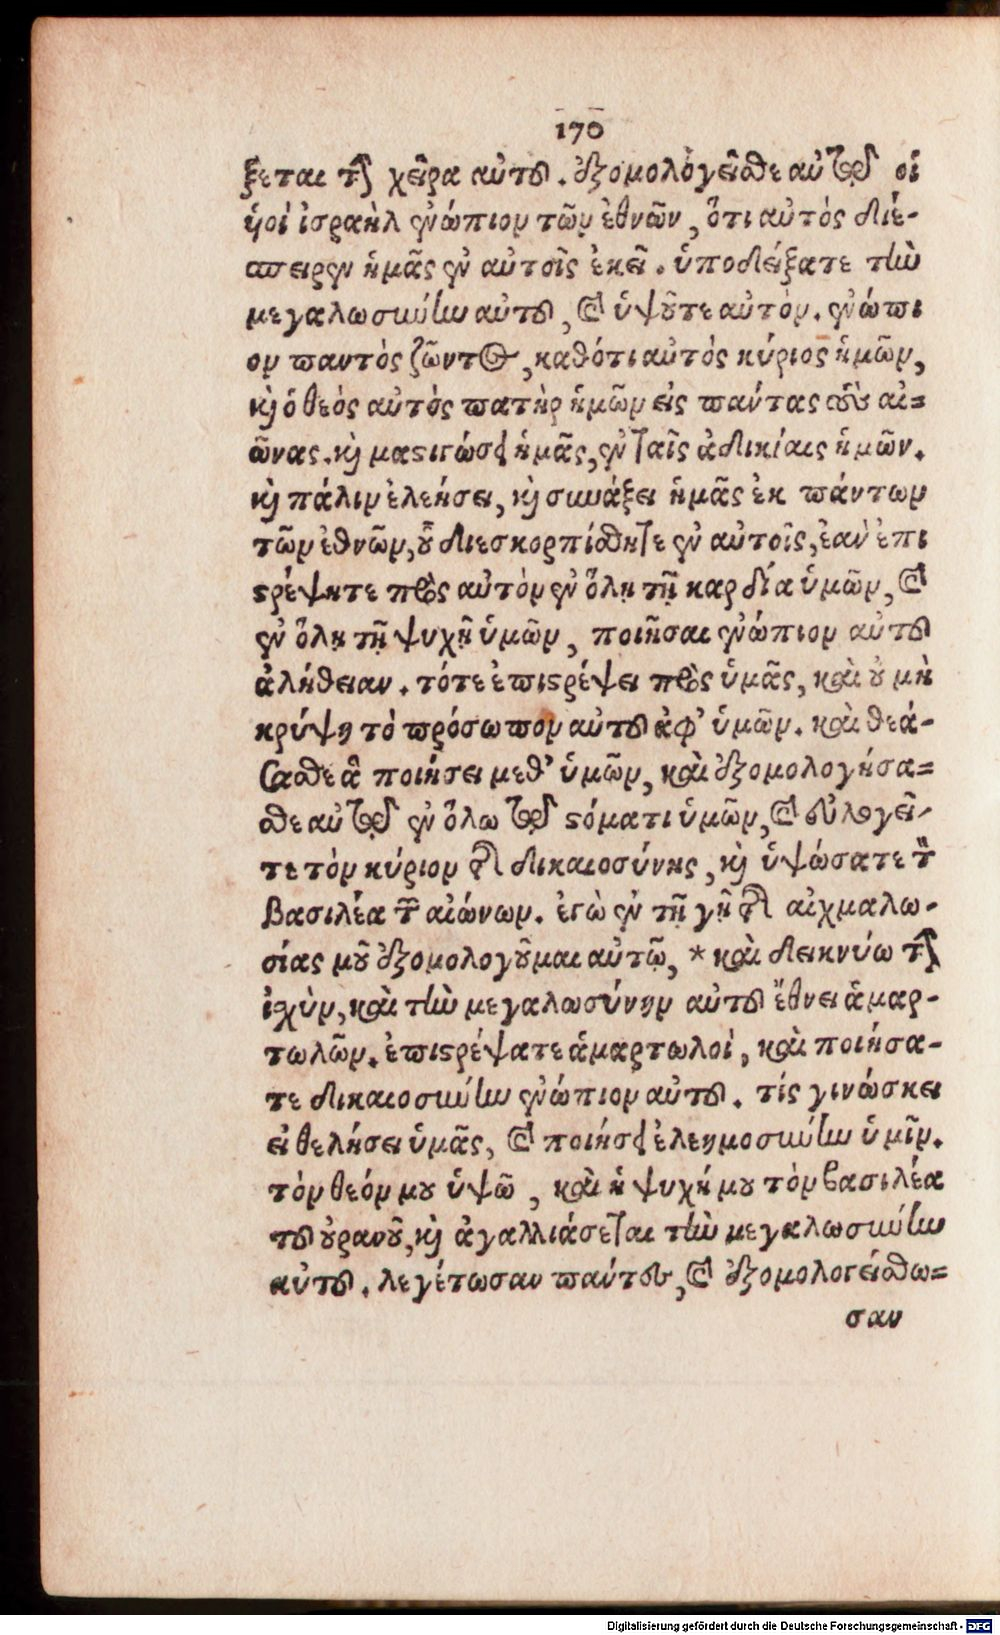 170
ξεται τὴν χεῖρα αὐτοῦ. ἐξομολογεῖσθε αὐτῷ οἱ
ὑοὶ ἰσραὴλ ἐνώπιον τῶν ἐθνῶν, ὅτι αὐτὸς διέ-
σπειρεν ἡμᾶς ἐν αὐτοῖς ἐκεῖ. ὑποδείξατε τὴν
μεγαλωσύνην αὐτοῦ, καὶ ὑψοῦτε αὐτὸν. ἐνώπι
ον παντὸς ζῶντος, καθότι αὐτὸς κύριος ἡμῶν,
καὶ ὁ θεὸς αὐτὸς πατὴρ ἡμῶν εἰς πάντας τοὺς αἰ=
ῶνας. καὶ μαστιγώσει ἡμᾶς, ἐν ταῖς ἀδικίαις ἡμῶν.
καὶ πάλιν ἐλεήσει, καὶ συνάξει ἡμᾶς ἐκ πάντων
τῶν ἐθνῶν, οὗ διεσκορπίσθητε ἐν αὐτοῖς, ἐαν ἐπι
στρέψητε πρὸς αὐτὸν ἐν ὅλῃ τῇ καρδία ὑμῶν, καὶ
ἐν ὅλῃ τῇ ψυχῇ ὑμῶν, ποιῆσαι ἐνώπιον αὐτοῦ
ἀλήθειαν. τότε ἐπιστρέψει πρὸς ὑμᾶς, καὶ οὐ μὴ
κρύψῃ τὸ πρόσωπον αὐτοῦ ἀφ’ ὑμῶν. καὶ θεά-
σασθε ἃ ποιήσει μεθ’ ὑμῶν, καὶ ἐξομολογήσα=
σθε αὐτῷ ἐν ὅλω τῷ στόματι ὑμῶν, καὶ εὐλογεῖ-
τε τὸν κύριον τῆς δικαιοσύνης, καὶ ὑψώσατε τὸν
βασιλέα τῶν αἰώνων. ἐγὼ ἐν τῇ γῇ τῆς αἰχμαλω-
σίας μοῦ ἐξομολογοῦμαι αὐτῷ, * καὶ δεικνύω τὴν
ἰσχὺν, καὶ τὴν μεγαλωσύνην αὐτοῦ ἔθνει ἁμαρ-
τωλῶν. ἐπιστρέψατε ἁμαρτωλοὶ, καὶ ποιήσα-
τε δικαιοσύνην ἐνώπιον αὐτοῦ. τίς γινώσκει
εἰ θελήσει ὑμᾶς, καὶ ποιήσει ἐλεημοσύνην ὑμῖν.
τὸν θεόν μου ὑψῶ, καὶ ἡ ψυχή μου τὸν βασιλέα
τοῦ οὐρανοῦ, καὶ ἀγαλλιάσεται τὴν μεγαλωσύνην
αὐτοῦ. λεγέτωσαν πάντες, καὶ ἐξομολογείσθω=
σαν
Digitalisierung gefördert durch die Deutsche Forschungsgemeinschaft - DFG